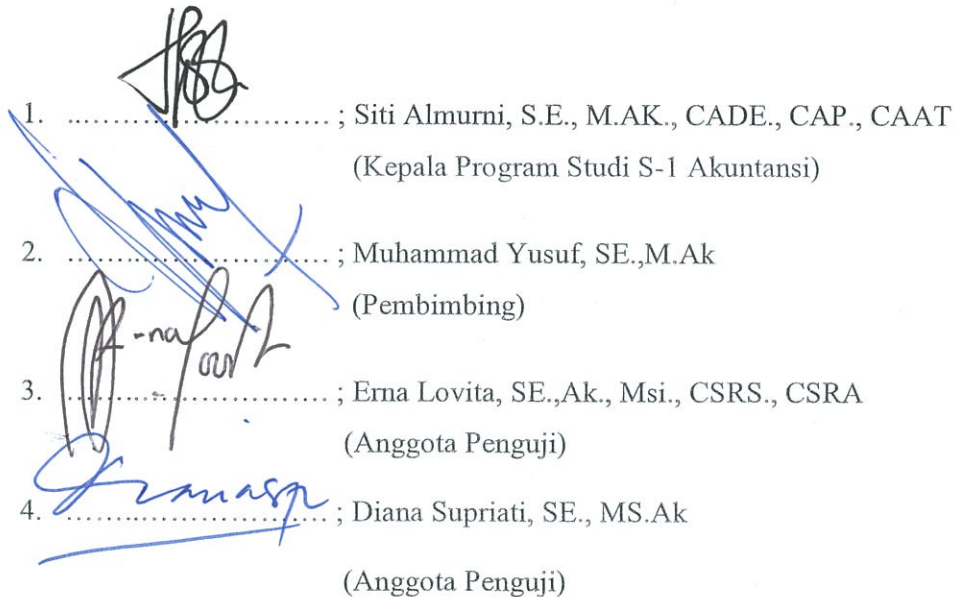 1. ............................. ; Siti Almurni, S.E., M.AK., CADE., CAP., CAAT
(Kepala Program Studi S-1 Akuntansi)
2. ............................. ; Muhammad Yusuf, SE.,M.Ak
(Pembimbing)
3. ............................. ; Erna Lovita, SE.,Ak., Msi., CSRS., CSRA
(Anggota Penguji)
4. ............................. ; Diana Supriati, SE., MS.Ak
(Anggota Penguji)